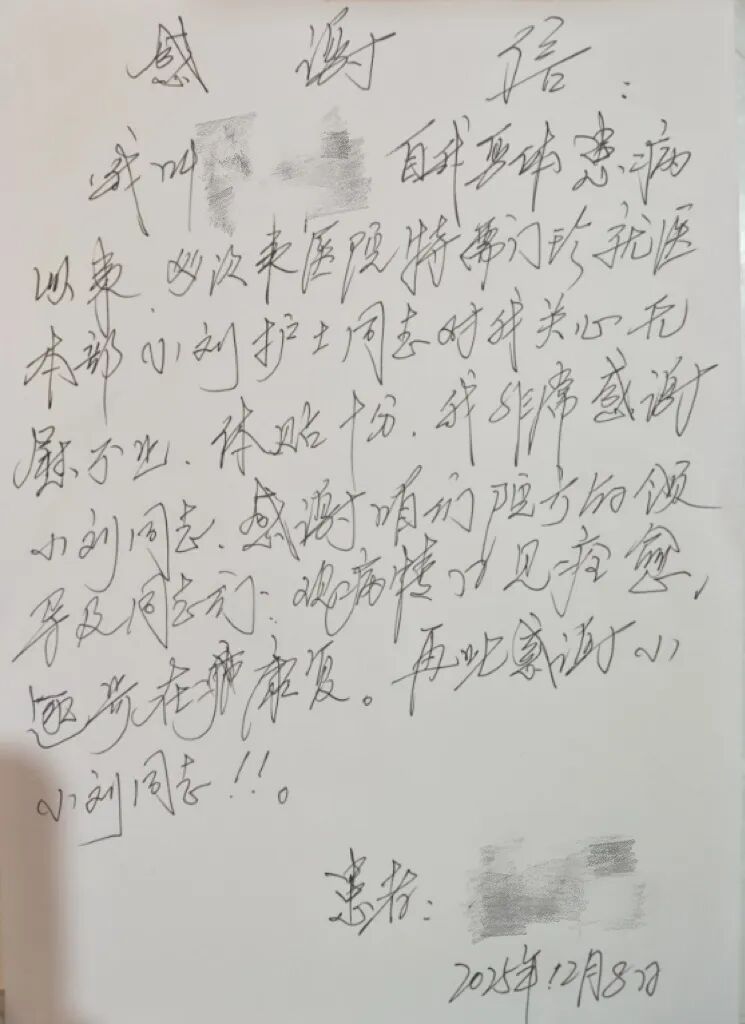 感谢信:
我叫 自我身体患病
以来,每次来医院特需门诊就医
本部小刘护士同志对我关心无
不止.体贴十分.我非常感谢
小刘同志.感谢咱们院方的领
导及同志们:现病情已见痊愈,
逐步在康复。再此感谢小
小刘同志!!。
患者:
2025年12月8日